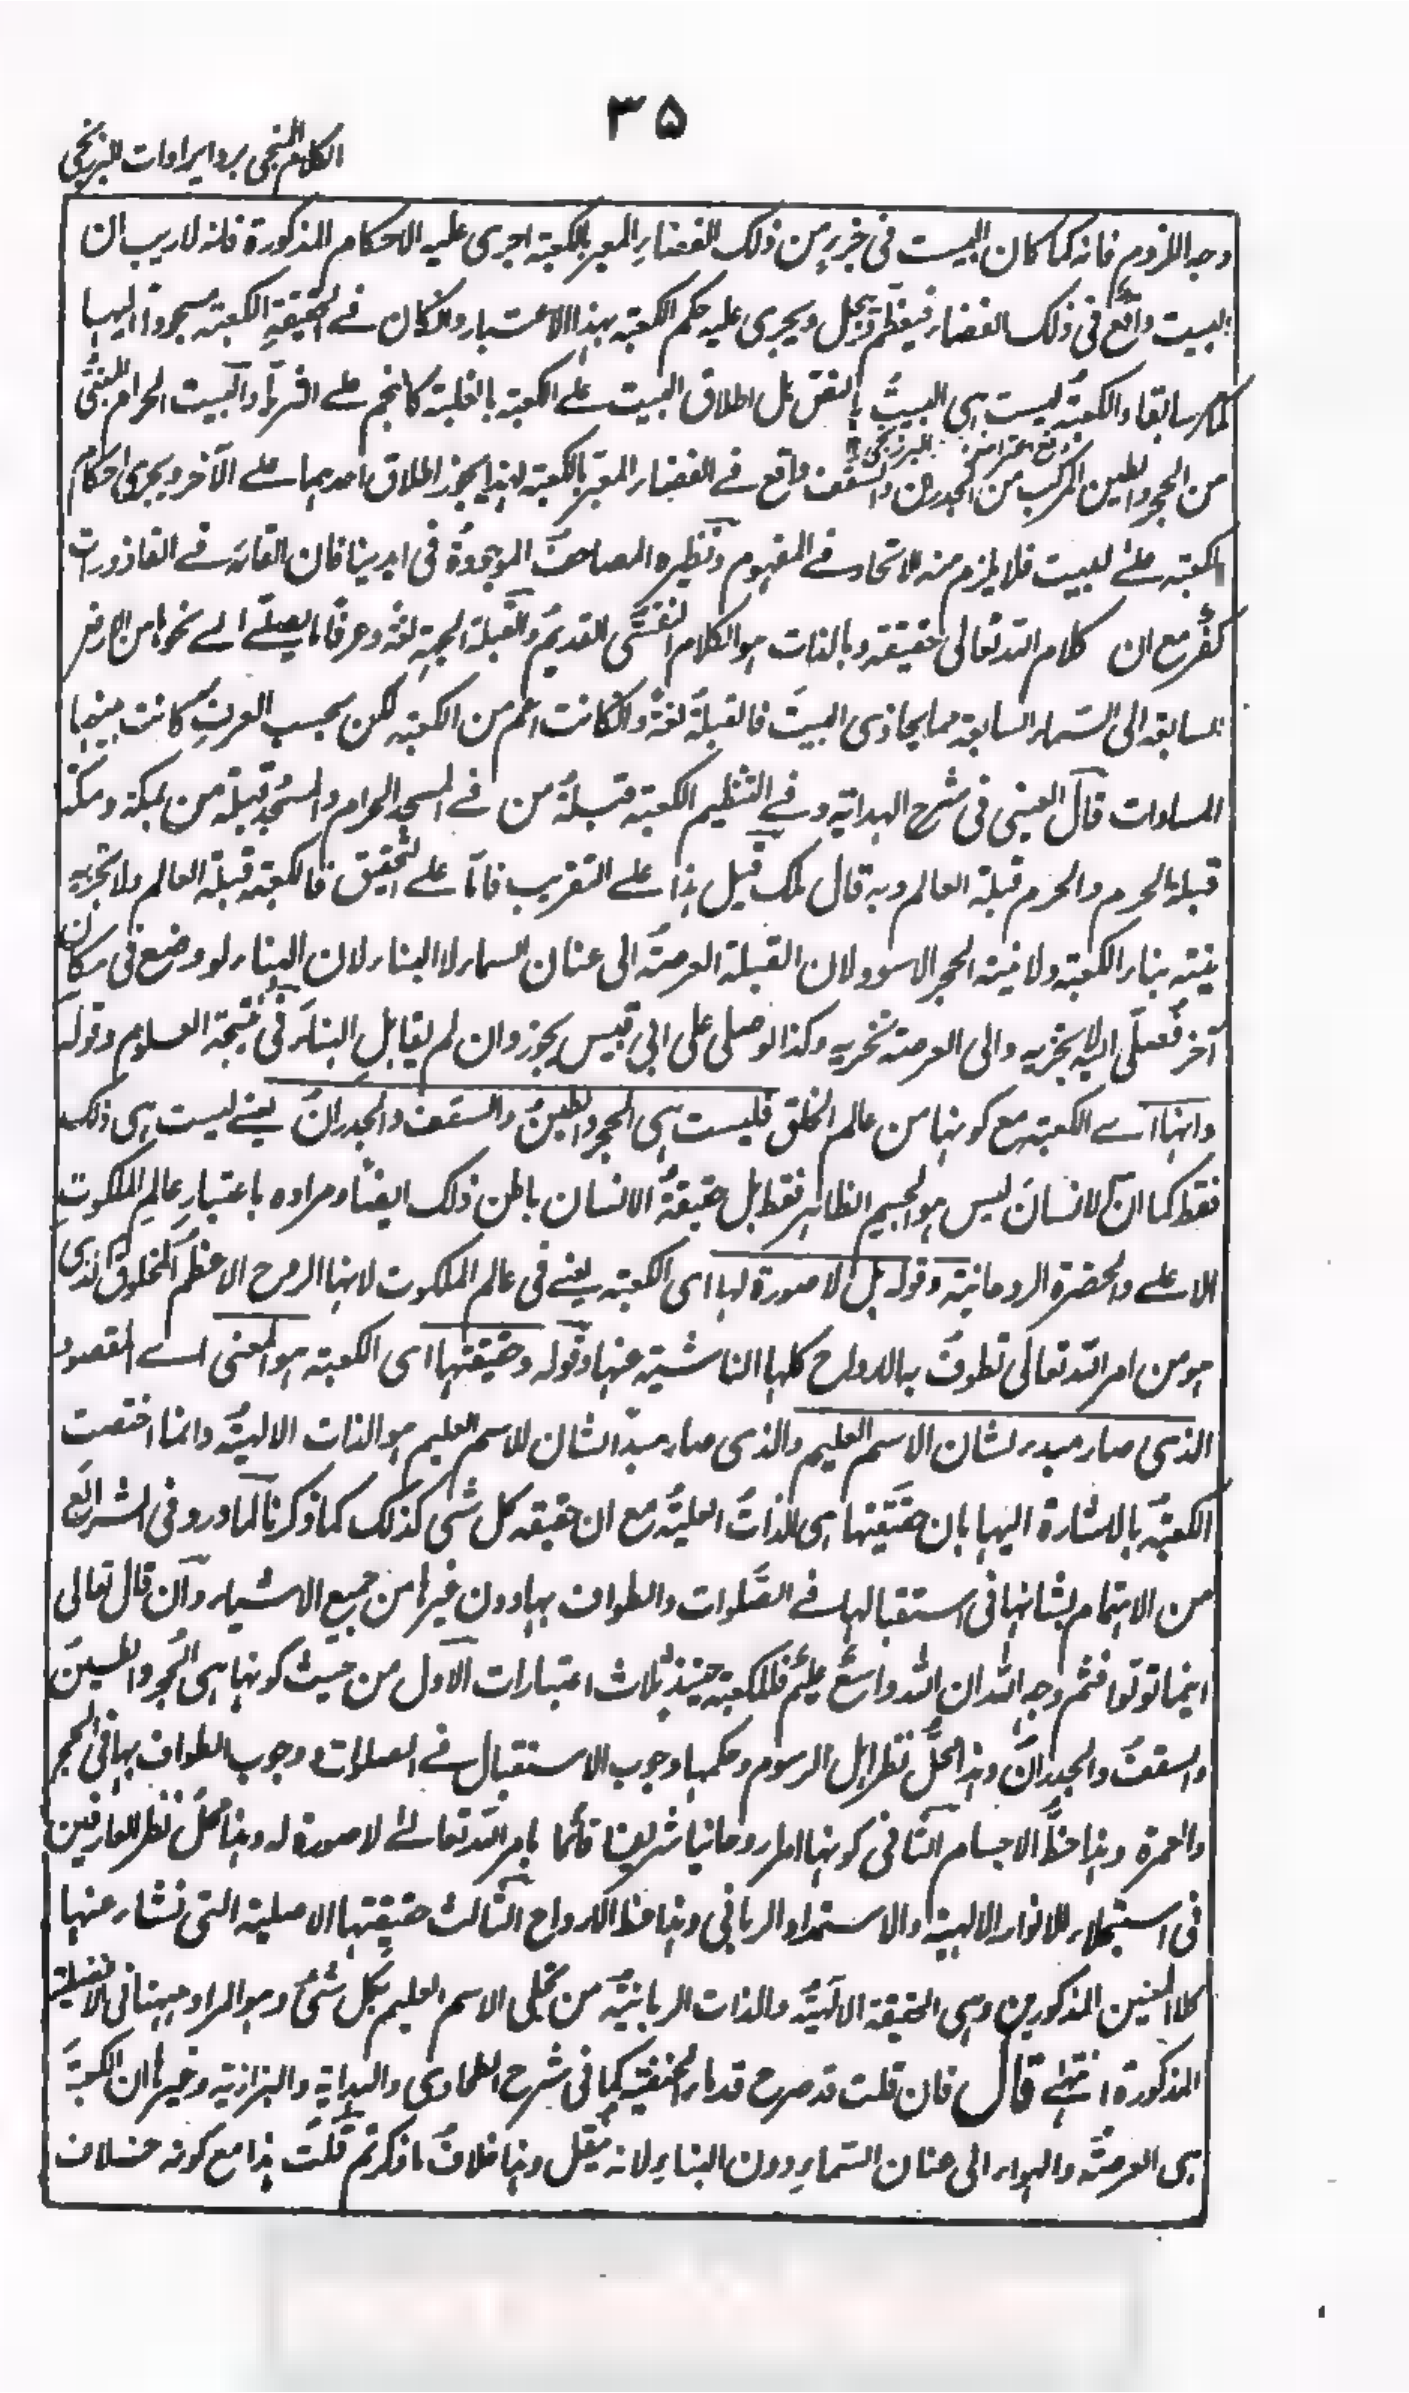 ۳۵
الكلام المنجى برد ايرادات البرزنجى
وجه اللزوم فانه كما كان البيت فى جزء من ذلك الفضاء المعبر بالكعبة اجرى عليه الاحكام المذكورة فانه لا ريب ان
البيت واقع فى ذلك الفضاء فيعظم ويجل ويجرى عليه حكم الكعبة بهذا الاعتبار وان كان فے الحقيقة الكعبة مسجودا اليها
كما مر سابقا والكعبة ليست هى البيت بالنص بل اطلاق البيت علے الكعبة بالغلبة كالنجم علے الثريا والبيت الحرام المبنى
دفع اعتراض البرزنجى
من الحجر والطين المركب من الجدران والسقف واقع فے الفضاء المعبر بالكعبة لهذا يجوز اطلاق احدهما علے الآخر ويجرى احكام
الكعبة علے البيت فلا يلزم منه الاتحاد فے المفهوم ونظيره المصاحف الموجودة فى ايدينا فان القاءه فے القاذورات
كفر مع ان كلام الله تعالى حقيقة وبالذات هو الكلام النفسى القديم والقبلة الجهة لغة وعرفا ما يصلى الے نحوها من الارض
السابعة الى السماء السابعة مما يحاذى البيت فالقبلة لغة وان كانت اعم من الكعبة لكن بحسب العرف كانت بينهما
المساوات قال العينى فى شرح الهداية وفے النظم الكعبة قبلة من فے المسجد الحرام والمسجد قبلة من بمكة ومكة
قبلة الحرم والحرم قبلة العالم وبه قال مالك قيل هذا علے التقريب فاما علے التحقيق فالكعبة قبلة العالم ولا تجزيه
نية بناء الكعبة ولا نية الحجر الاسود ولان القبلة العرصة الى عنان السماء لا البناء لان البناء لو وضع فى مكان
آخر فصلى اليه لا يجزيه والى العرصة تجزيه وكذا لو صلى على ابى قبيس يجوز وان لم يقابل البناء فى نتيجة العلوم وقوله
وانها اے الكعبة مع كونها من عالم الخلق فليست هى الحجر والطين والسقف والجدران يعنے ليست هى ذلك
فقط كما ان الانسان ليس هو الجسم الظاهر فقط بل حقيقة الانسان باطن ذلك ايضا ومراده باعتبار عالم الملكوت
الاعلے والحضرة الروحانية وقوله بل لا صورة لها اى الكعبة يعنے فى عالم الملكوت لانها الروح الاعظم المخلوق الذى
هو من امر الله تعالى تطوف به الارواح كلها الناشية عنها وقوله وحقيقتها اى الكعبة هو المعنى اے المقصود
الذى صار مبدء لشان الاسم العليم والذى صار مبدأ لشان للاسم العليم هو الذات الالهية وانما اختصت
الكعبة بالاشارة اليها بان حقيقتها هى الذات العلية مع ان حقيقة كل شى كذلك كما ذكرنا لما ورد فى الشرائع
من الاهتمام بشانها فى استقبالها فے الصلوات والطواف بها دون غيرها من جميع الاشياء وان قال تعالى
اينما تولوا فثم وجه الله ان الله واسع عليم فللكعبة حينئذ ثلاث اعتبارات الاول من حيث كونها هى الحجر والطين
والسقف والجدران وهذا محل نظر اهل الرسوم وحكمها وجوب الاستقبال فے الصلوات ووجوب الطواف بها فى الحج
والعمرة وهذا حظ الاجسام الثانى كونها امرا روحانيا شريفا قائما بامر الله تعالے لا صورة له وهذا محل نظر العارفين
فى استجلاء للانوار الالهية والاستمداد الربانى وهذا حظ الارواح الثالث حقيقتها الاصلية التى نشاء عنها
كلا المعنين المذكورين وهى الحقيقة الالهية والذات الربانية من تجلى الاسم العليم بكل شئ وهو المراد ههنا فى الافضلية
المذكورة انتهے قال فان قلت قد صرح قدماء الحنفية كما فى شرح الطحاوى والهداية والبزازية وغيرها ان الكعبة
هى العرصة والهواء الى عنان السماء دون البناء لانه ينقل وهذا خلاف ما ذكرتم قلت هذا مع كونه خلاف